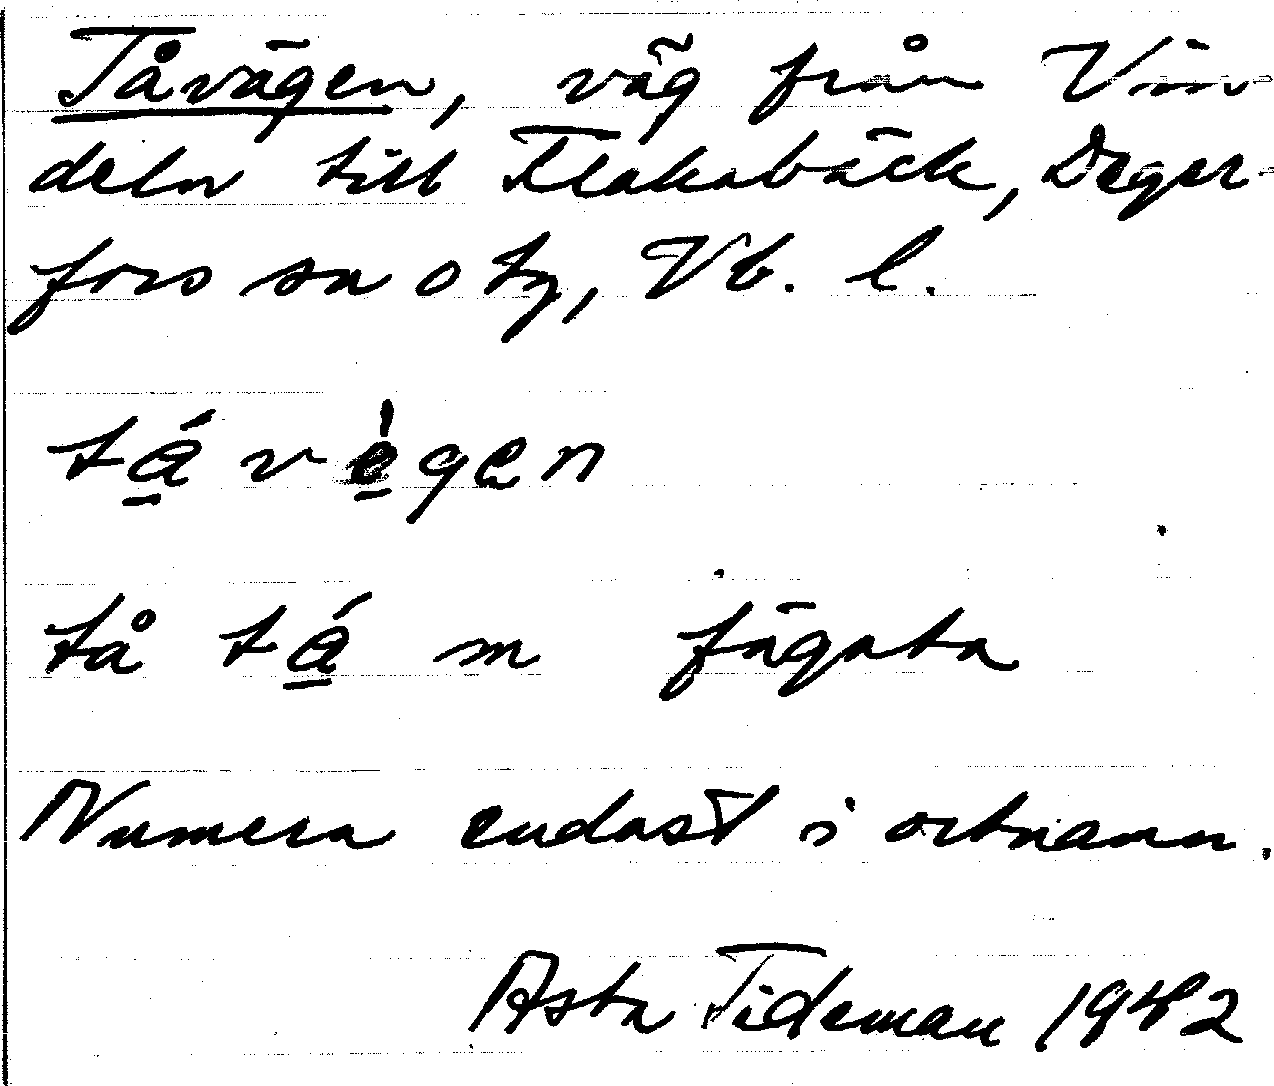 Tåvägen, väg från Vin-
deln till Flakabäck, Deger-
fors sn o tg, Vb. l.
tá̱ vè̱gen
tå tá̱ m fägata
Numera endast i ortnamn.
Asta Tideman 1942